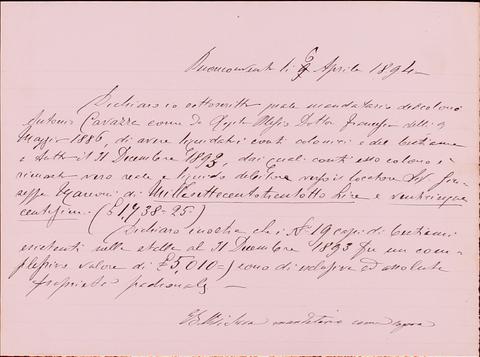 Buonconvento li 6 Aprile 1894
Dichiaro io sottoscritto quale mandatario del colono
Antonio Cavazza come da Rogito Dottor Francesco delli 9
Maggio 1886, di avere liquidati conti colonici e del bestiame
a tutto il 31 Dicembre 1893, dai quali conti esso colono è
rimasto vero reale e liquido debitore verso il locatore Giu-
seppe di Millesettecentotrentotto Lire e venticinque
centesimi. (£ 1,738-25)
Dichiaro inoltre che i N° 19 capi di bestiami
esistenti nella stalla al 31 Dicembre 1893 fra un com-
plessivo valore di £5,010=) sono di esclusiva ed assoluta
proprietà padronale
mandatario come sopra